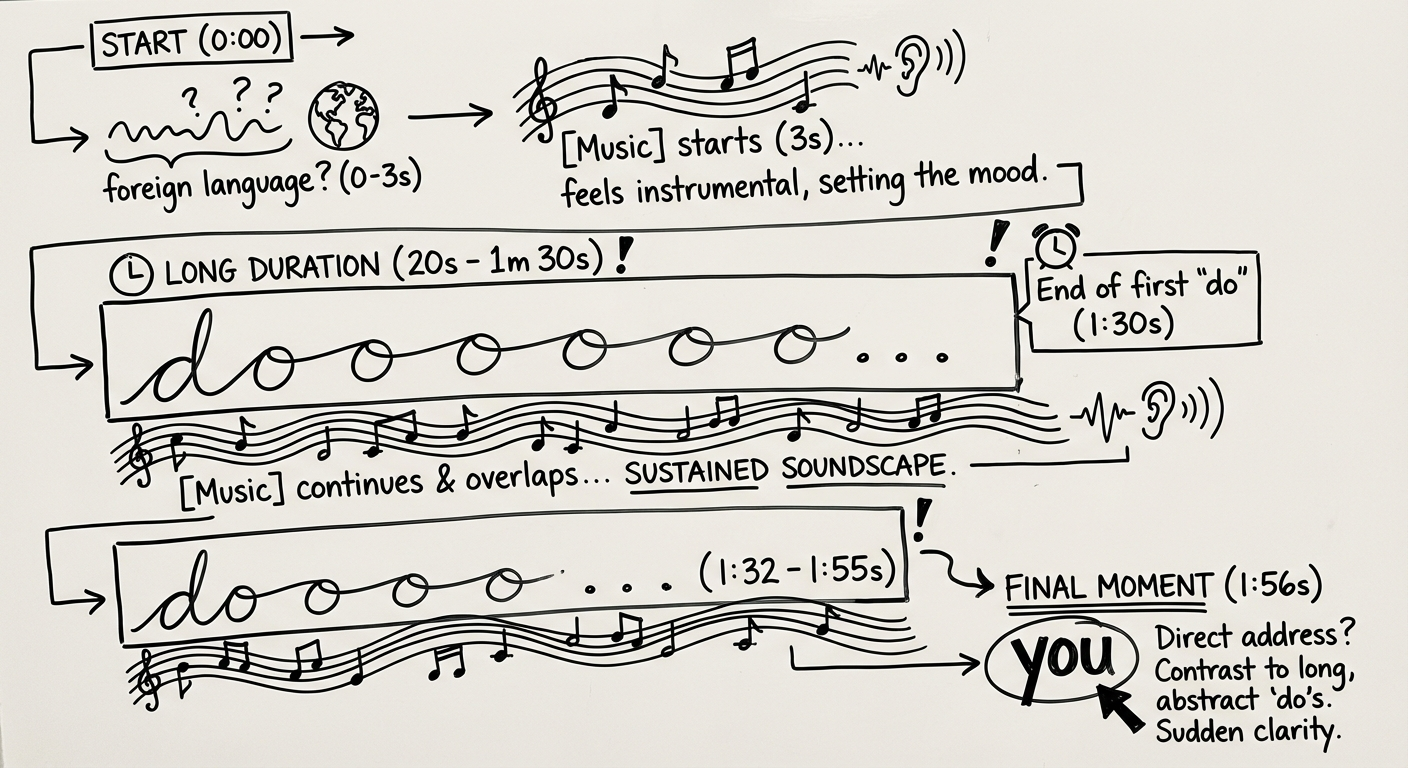 START (0:00)
? ? ?
foreign language? (0-3s)
[Music] starts (3s)...
feels instrumental, setting the mood.
LONG DURATION (20s - 1m 30s) !
!
End of first "do"
(1:30s)
dooooooo...
[Music] continues & overlaps... SUSTAINED SOUNDSCAPE.
!
doooo ... (1:32 - 1:55s)
FINAL MOMENT (1:56s)
you
Direct address?
Contrast to long,
abstract 'do's.
Sudden clarity.